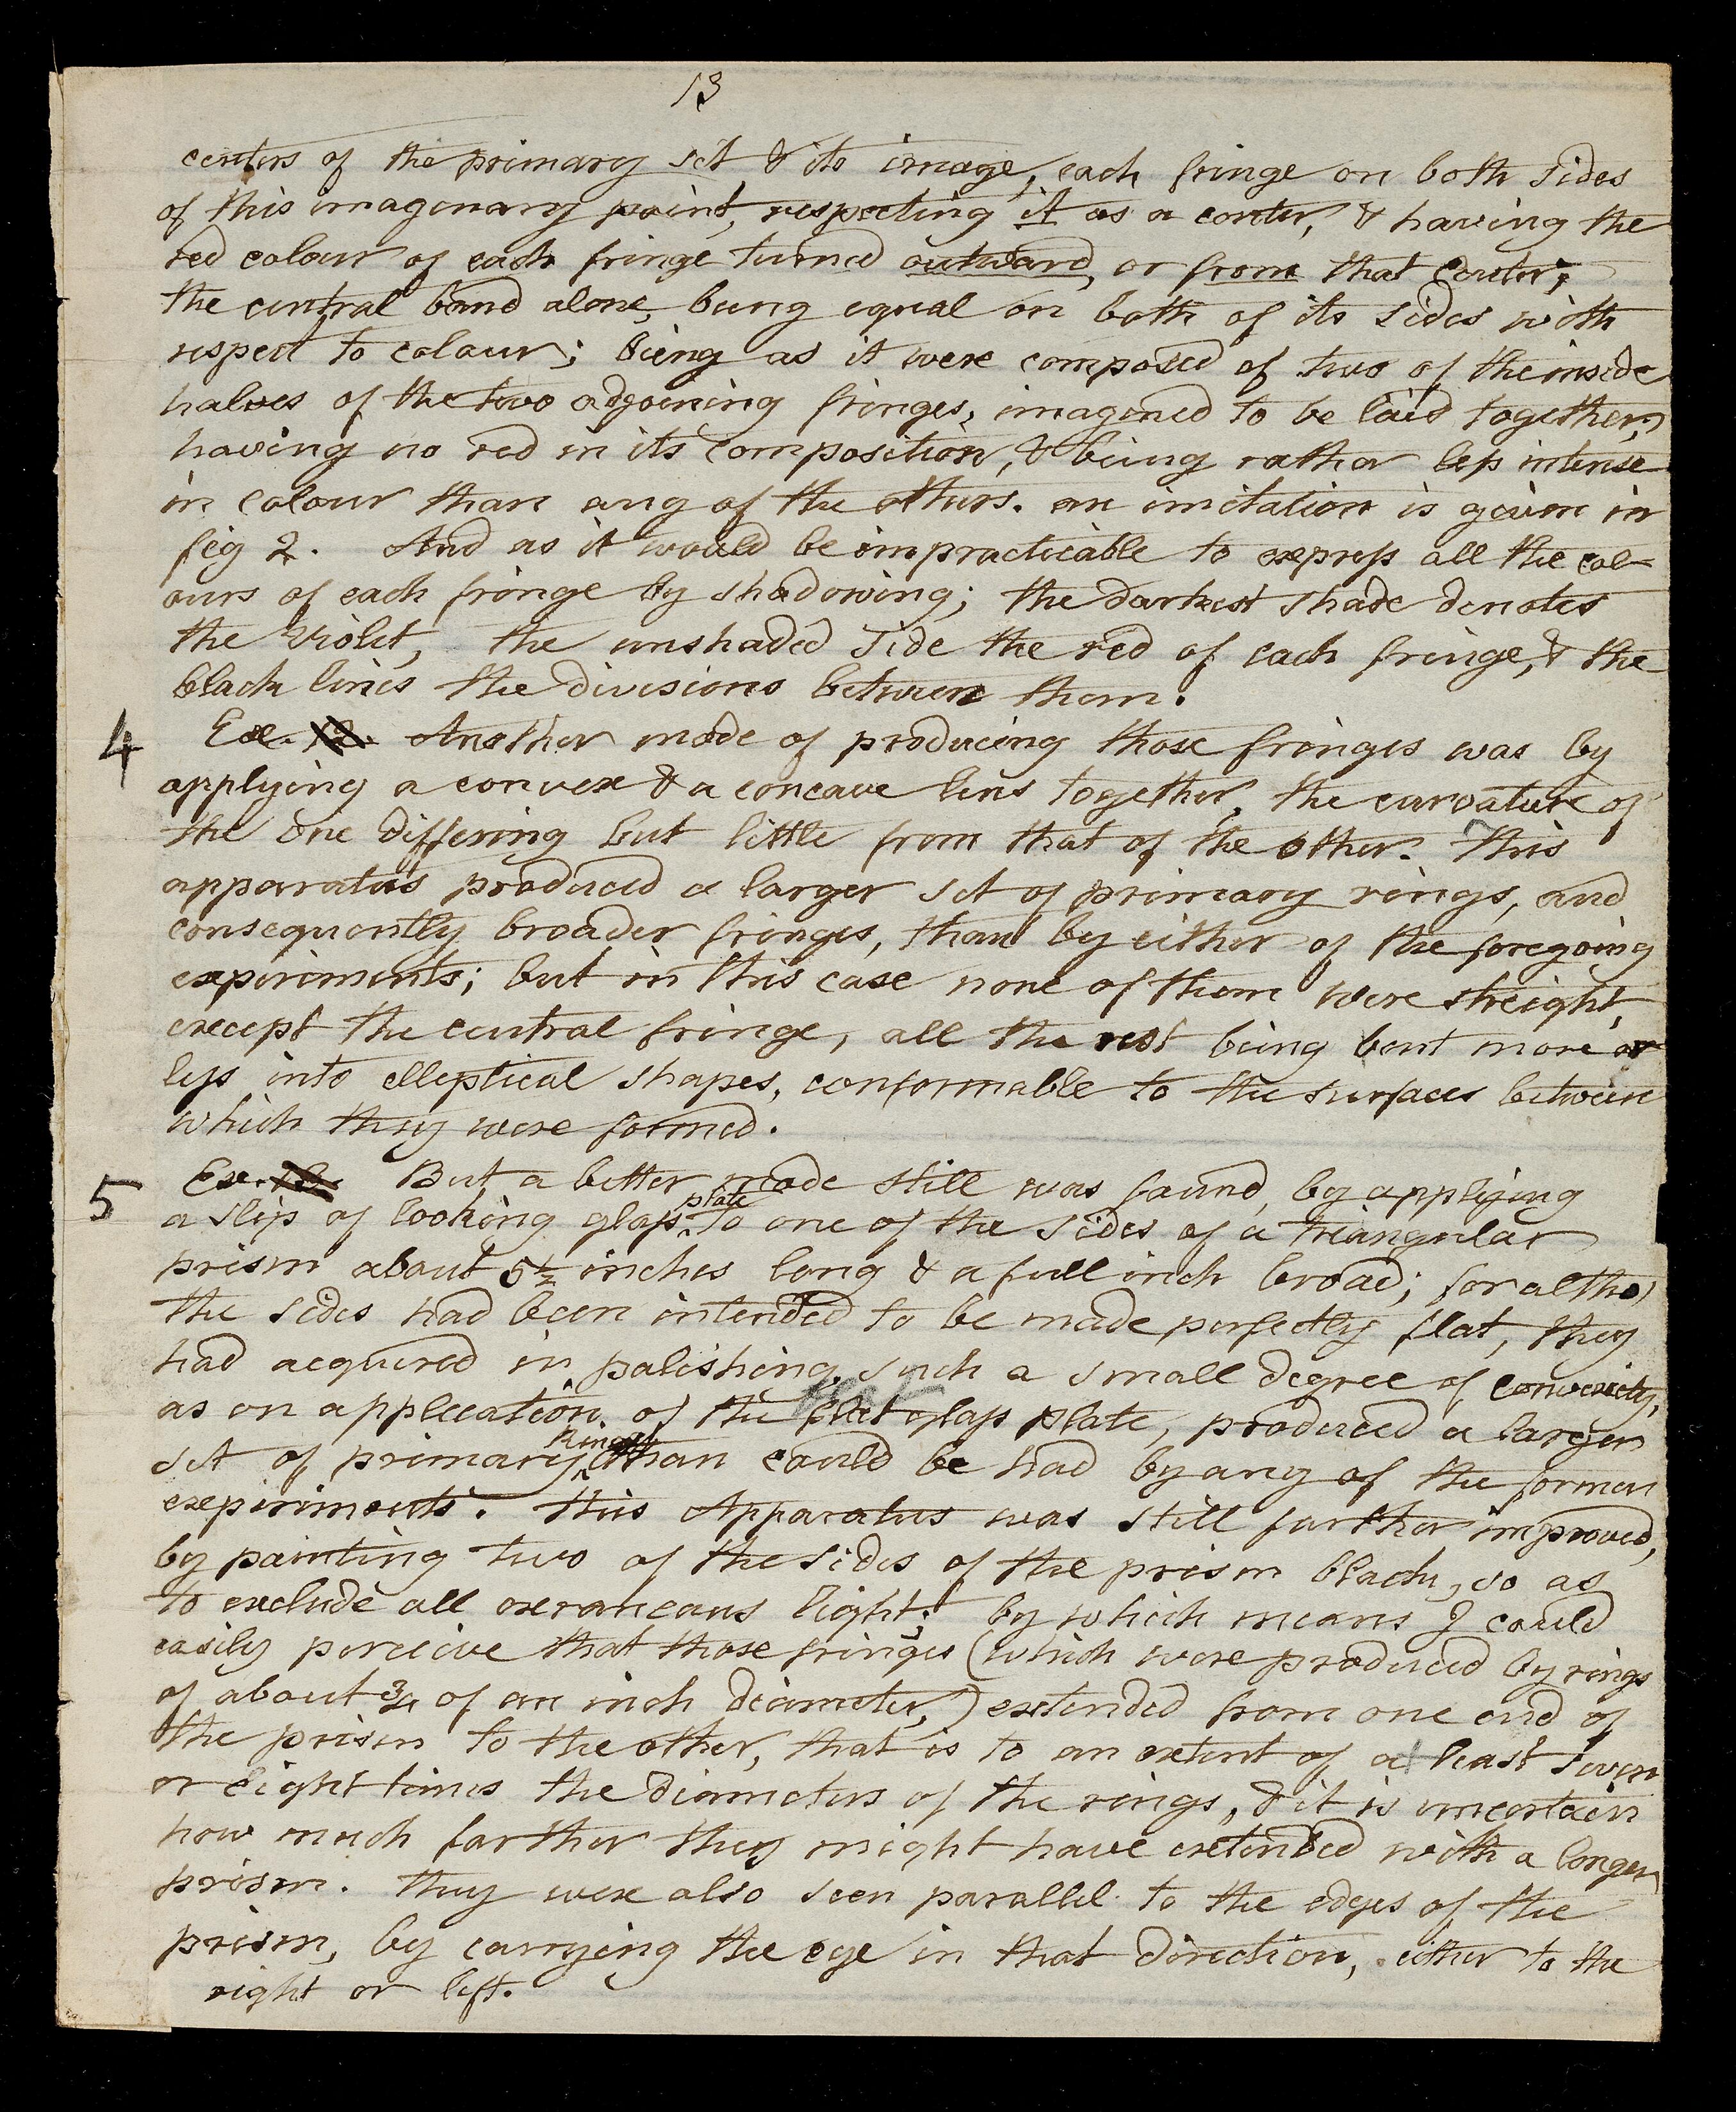 13
centers of the primary set & its image, each fringe on both sides
of this imagenary point, respecting it as a center, & having the
red colour of each fringe turned outward, or from that center;
the central band alone, being equal on both of its sides with
respect to colour; being as it were composed of two of the inside
halves of the two adjoining fringes, imagined to be laid together,
having no red in its composition, & being rather less intense
in colour than any of the others. an imitation is given in
fig 2. And as it would be impracticable to express all the col-
ours of each fringe by shadowing; the darkest shade denotes
the violet, the unshaded side the red of each fringe, & the
black lines the divisions between them.
4 Ex. 12. Another mode of producing those fringes was by
applying a convex & a concave lens together, the curvature of
the one differing but little from that of the other. This
apparatus produced a larger set of primary rings, and
consequently broader fringes, than by either of the foregoing
experiments; but in this case none of them were streight,
except the central fringe, all the rest being bent more or
less into elleptical shapes, conformable to the surfaces between
which they were formed.
5 Ex. 13. But a better mode still was found, by applying
a slip of looking glass plate to one of the sides of a triangular
prism about 5½ inches long & a full inch broad; for altho
the sides had been intended to be made perfectly flat, they
had acquired in polishing, such a small degree of convexity,
as on application of the flat glass plate, produced a larger
set of primary Rings than could be had by any of the former
experiments. this Apparatus was still further improved,
by painting two of the sides of the prism black, so as
to exclude all exraneans light; by which means I could
easily percieve that those fringes (which were produced by rings
of about ¾ of an inch diameter,) extended from one end of
the prism to the other, that is to an extent of at least seven
or eight times the diameters of the rings, & it is uncertain
how much farther they might have extended with a longer
prism. they were also seen parallel to the edges of the
prism, by carrying the eye in that direction, either to the
right or left.